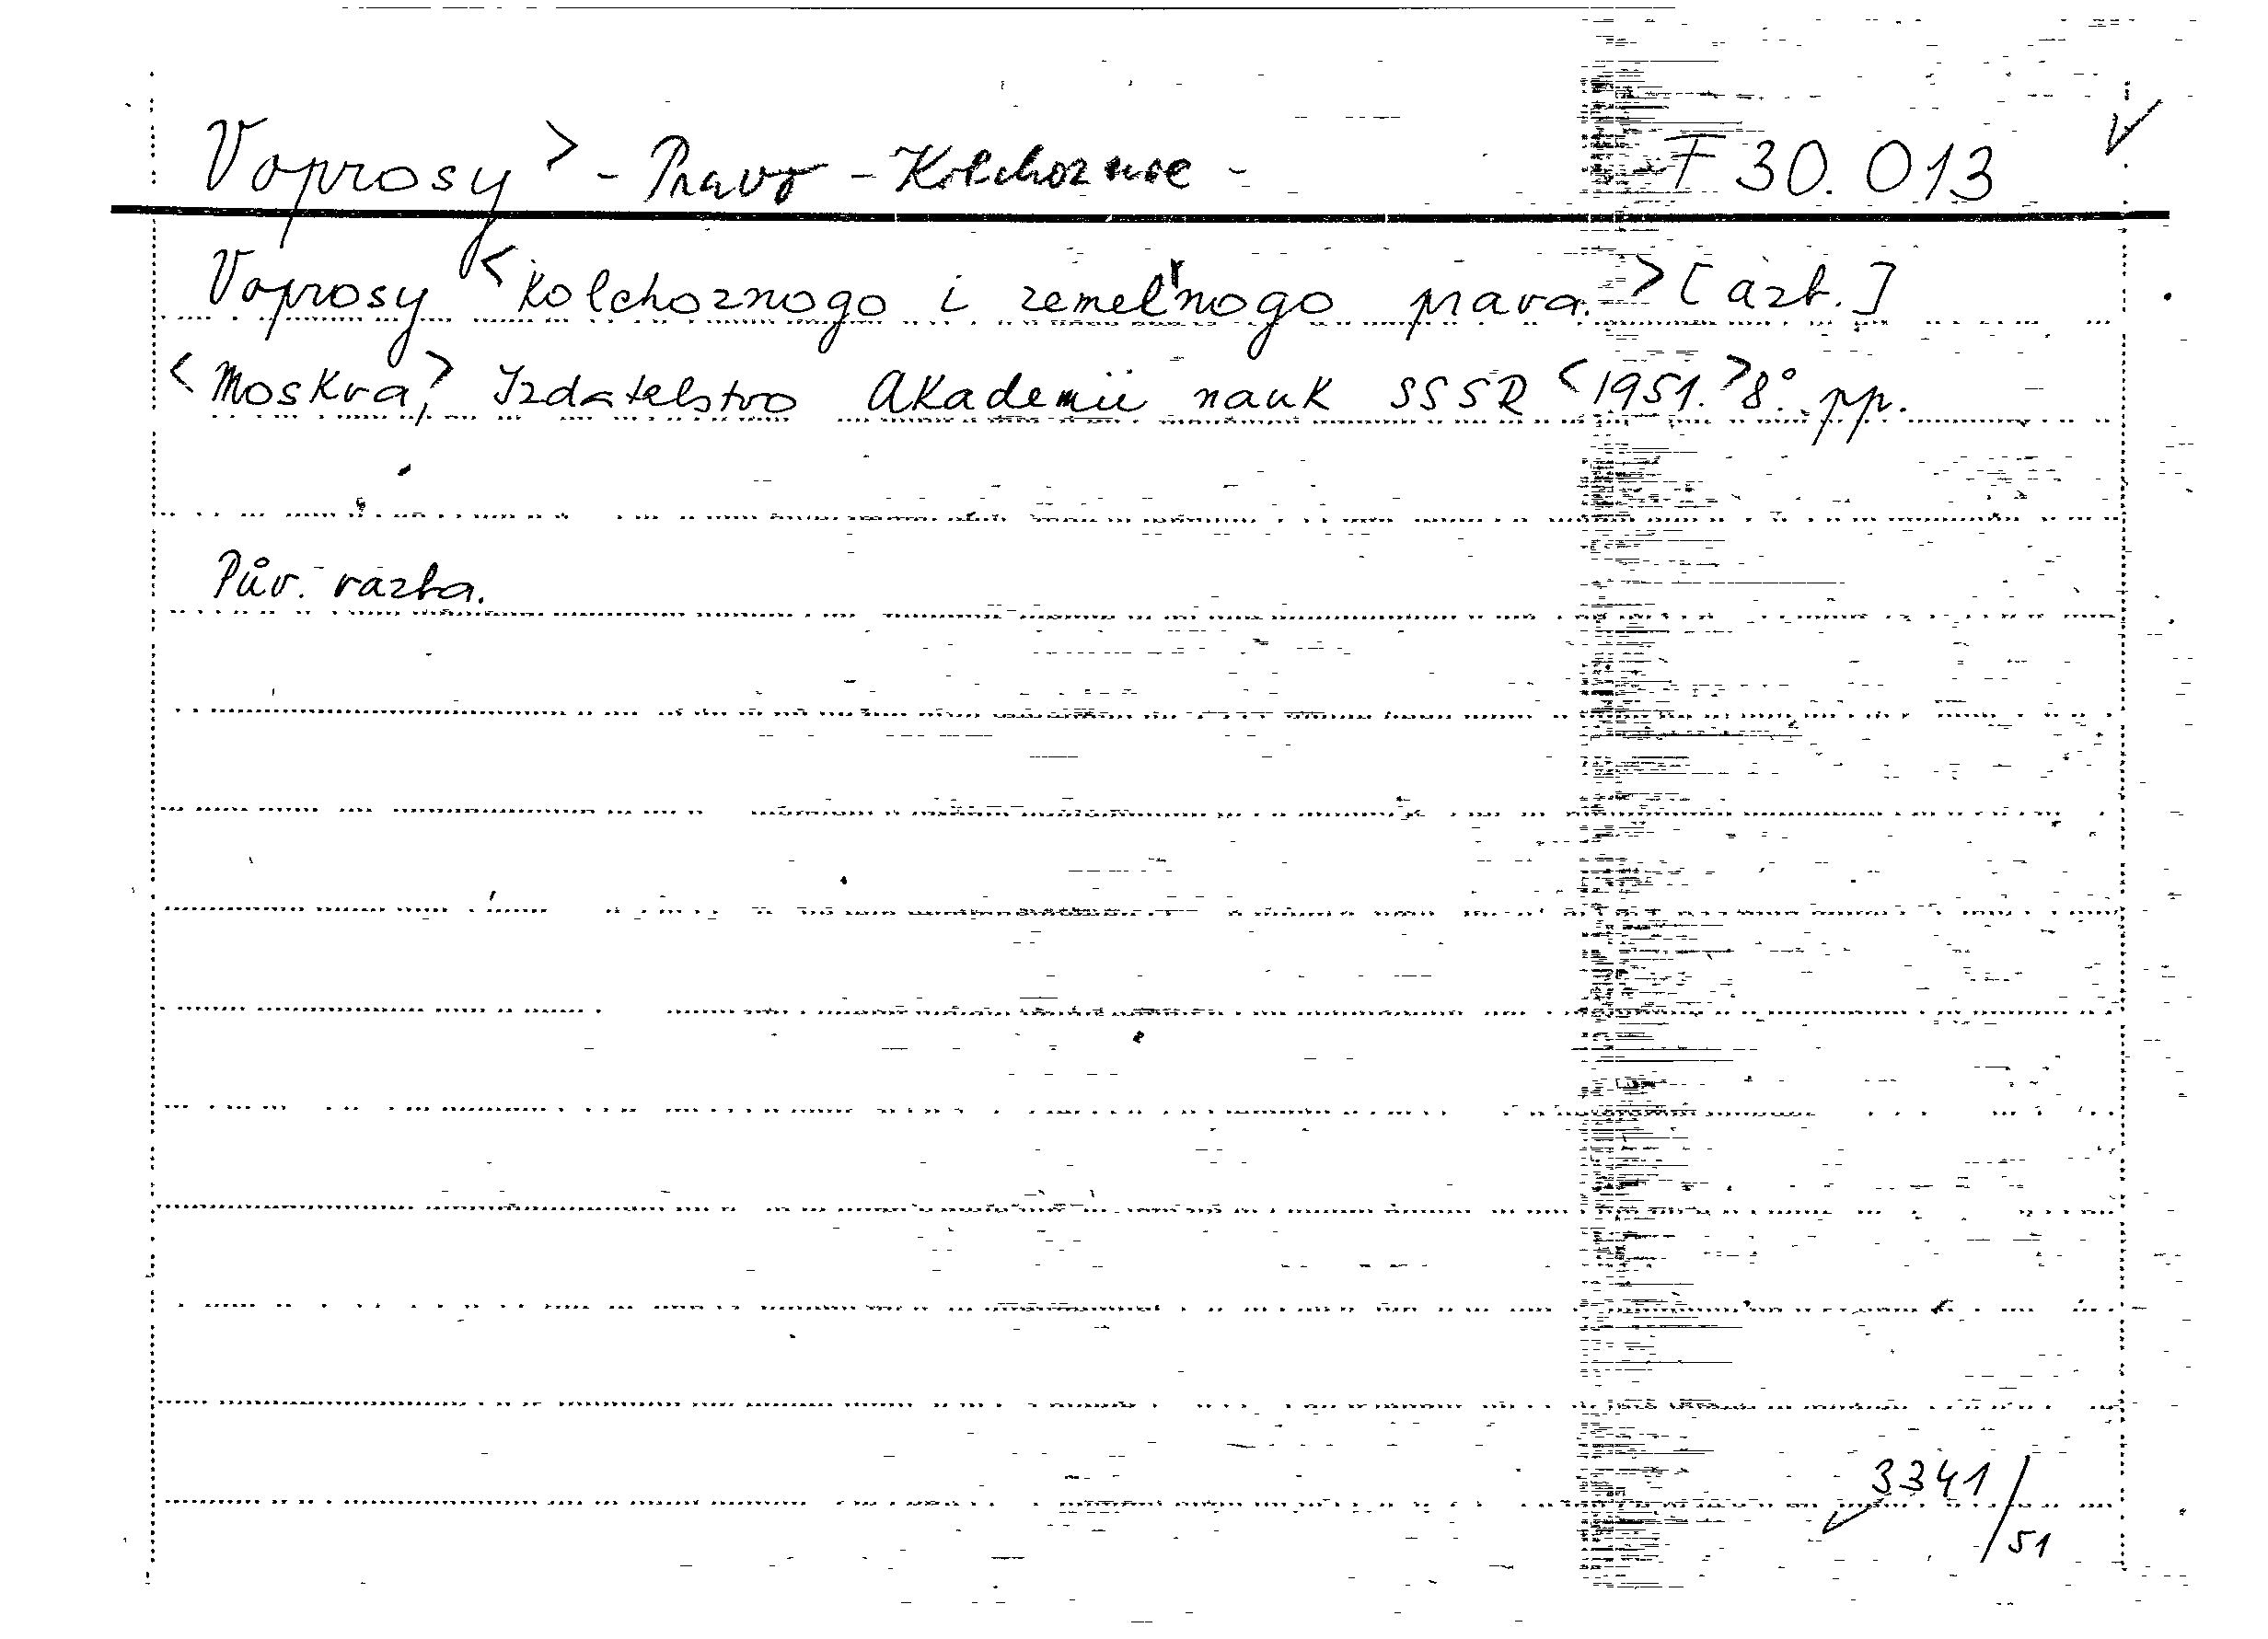 Voprosy > - Pravo - Kolchoznoe - F 30.013
Voprosy < kolchoznogo i zemel'nogo prava. > [azb.]
< Moskva, > Izdatelstvo Akademii nauk SSSR < 1951. > 8° pp.
Pův. vazba.
3341/51